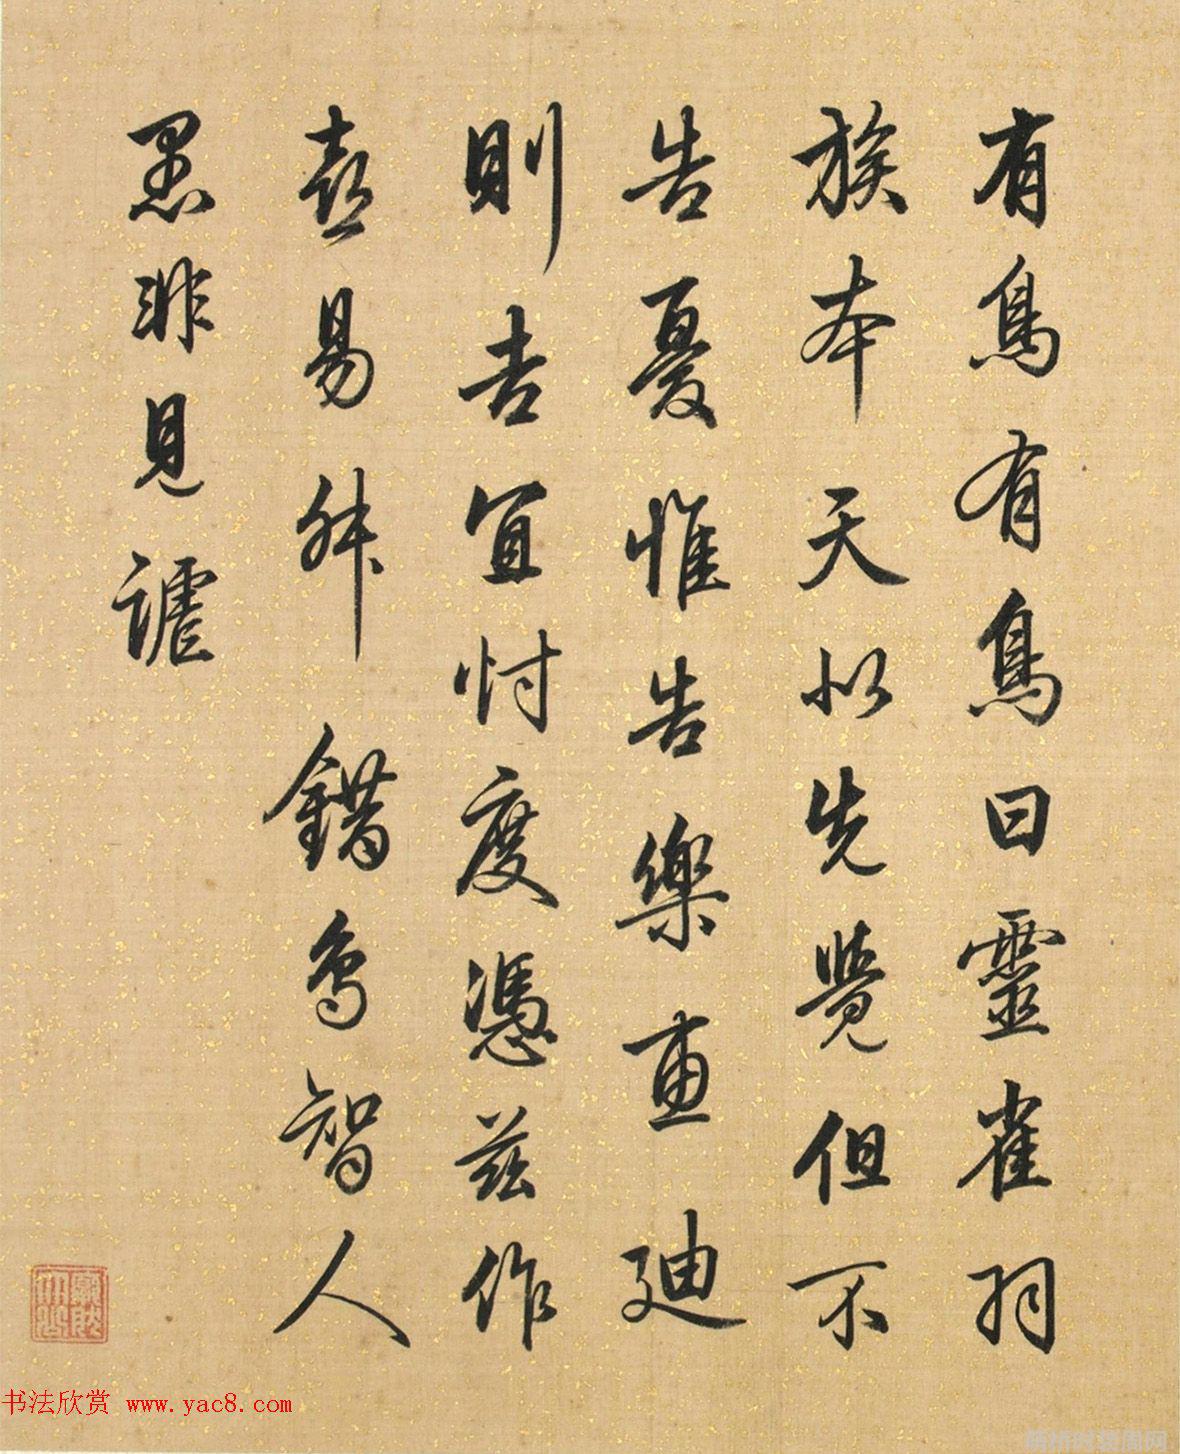 有鳥有鳥曰靈雀羽
族本天以先覺但不
告憂惟告樂惠迪
則吉宜忖度憑茲作
喜易舛錯鳥智人
愚非見謔
书法欣赏 www.yac8.com